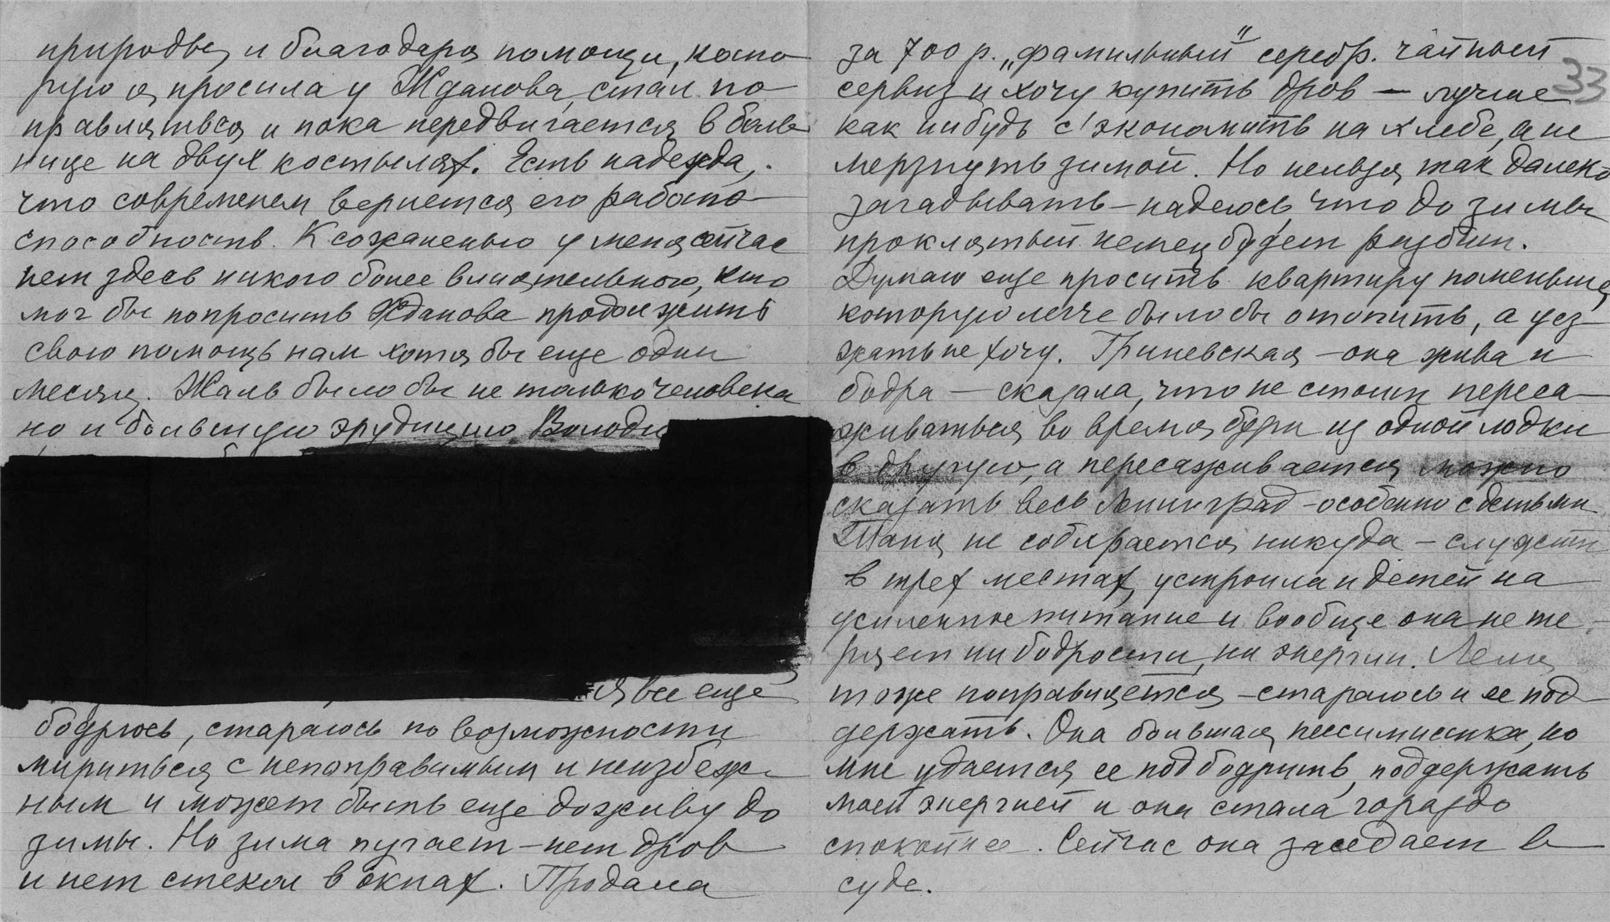 природы и благодаря помощи, кото-
рую я просила у Жданова, стал по-
правляться и пока передвигается в боль-
нице на двух костылях. Есть надежда,
что современем вернется его работо-
способность. К сожаленью у меня сейчас
нет здесь никого более влиятельного, кто
мог бы попросить Жданова продолжить
свою помощь нам хотя бы еще один
месяц. Жаль было бы не только человека
но и большую эрудицию Володи
я все еще
бодрюсь, стараюсь по возможности
мириться с непоправимым и неизбеж-
ным и может быть еще доживу до
зимы. Но зима пугает – нет дров
и нет стекол в окнах. Продала
33
за 700 р. „фамильный" серебр. чайный
сервиз и хочу купить дров – лучше
как нибудь с'экономить на хлебе, а не
мерзнуть зимой. Но нельзя так далеко
загадывать – надеюсь, что до зимы
проклятый немец будет разбит.
Думаю еще просить квартиру поменьше,
которую легче было бы отопить, а уез-
жать не хочу. Гриневская – она жива и
бодра – сказала, что не стоит переса-
живаться во время бури из одной лодки
в другую, а пересаживается можно
сказать весь Ленинград – особенно с детьми.
Таня не собирается никуда – служит
в трех местах, устроила и детей на
усиленное питание и вообще она не те-
ряет ни бодрости, ни энергии. Леля
тоже поправляется – стараюсь и ее под-
держать. Она большая пессимистка, но
мне удается ее подбодрить, поддержать
моей энергией и она стала гораздо
спокойнее. Сейчас она заседает в
суде.